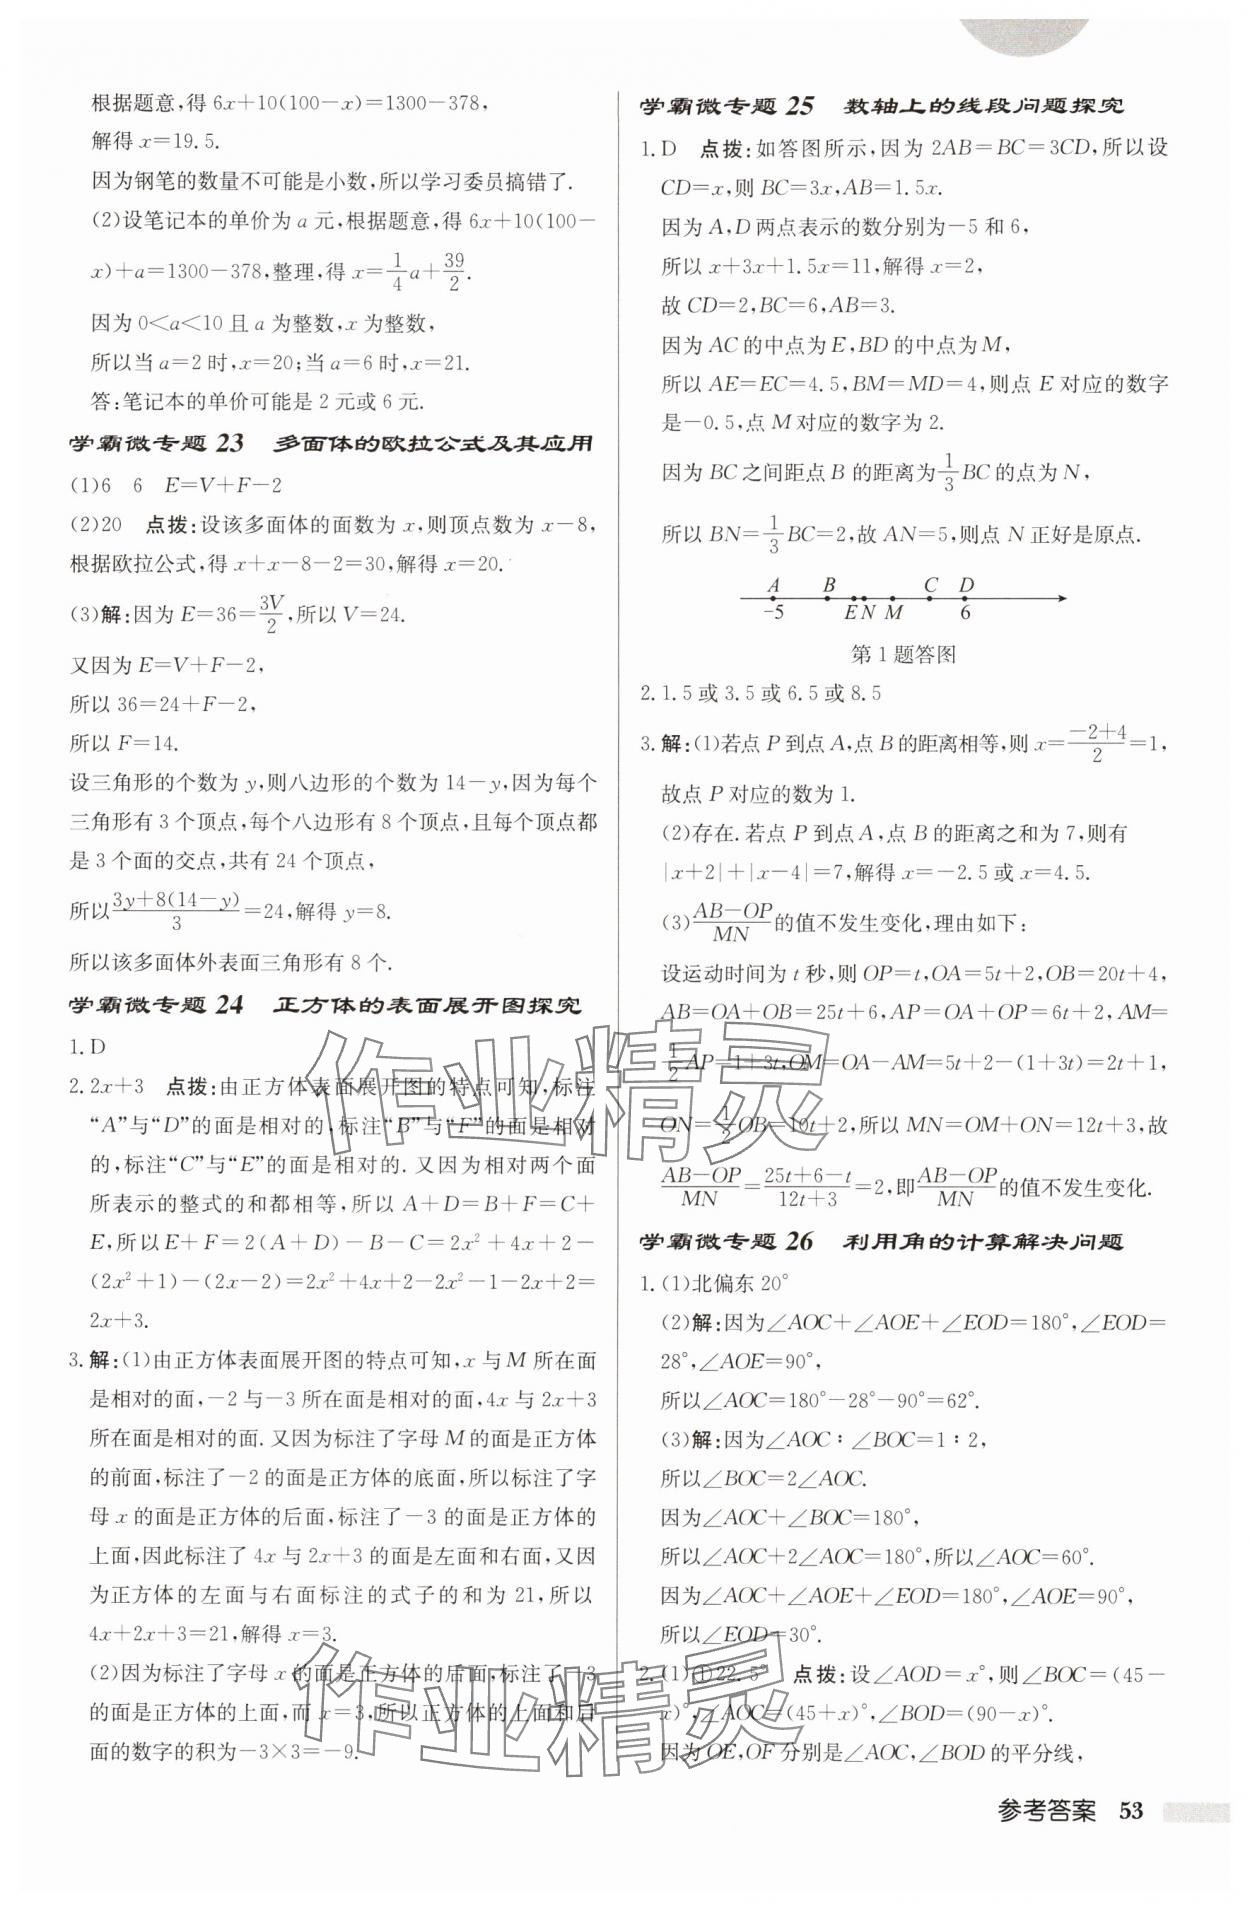 根据题意,得 6x+10(100-x)=1300-378,
解得 x=19.5.
因为钢笔的数量不可能是小数,所以学习委员搞错了.
(2)设笔记本的单价为 a 元,根据题意,得 6x+10(100-
x)+a=1300-378,整理,得 x=1/4a+39/2.
因为 0<a<10 且 a 为整数,x 为整数,
所以当 a=2 时,x=20;当 a=6 时,x=21.
答:笔记本的单价可能是 2 元或 6 元.
学霸微专题 23 多面体的欧拉公式及其应用
(1)6 6 E=V+F-2
(2)20 点拨:设该多面体的面数为 x,则顶点数为 x-8,
根据欧拉公式,得 x+x-8-2=30,解得 x=20.
(3)解:因为 E=36=3V/2,所以 V=24.
又因为 E=V+F-2,
所以 36=24+F-2,
所以 F=14.
设三角形的个数为 y,则八边形的个数为 14-y,因为每个
三角形有 3 个顶点,每个八边形有 8 个顶点,且每个顶点都
是 3 个面的交点,共有 24 个顶点,
所以(3y+8(14-y))/3=24,解得 y=8.
所以该多面体外表面三角形有 8 个.
学霸微专题 24 正方体的表面展开图探究
1.D
2.2x+3 点拨:由正方体表面展开图的特点可知,标注
“A”与“D”的面是相对的,标注“B”与“F”的面是相对
的,标注“C”与“E”的面是相对的.又因为相对两个面
所表示的整式的和都相等,所以 A+D=B+F=C+
E,所以 E+F=2(A+D)-B-C=2x²+4x+2-
(2x²+1)-(2x-2)=2x²+4x+2-2x²-1-2x+2=
2x+3.
3.解:(1)由正方体表面展开图的特点可知,x 与 M 所在面
是相对的面,-2 与-3 所在面是相对的面,4x 与 2x+3
所在面是相对的面.又因为标注了字母 M 的面是正方体
的前面,标注了-2 的面是正方体的底面,所以标注了字
母 x 的面是正方体的后面,标注了-3 的面是正方体的
上面,因此标注了 4x 与 2x+3 的面是左面和右面,又因
为正方体的左面与右面标注的式子的和为 21,所以
4x+2x+3=21,解得 x=3.
(2)因为标注了字母 x 的面是正方体的后面,标注了-3
的面是正方体的上面,而 x=3,所以正方体的上面和后
面的数字的积为-3×3=-9.
学霸微专题 25 数轴上的线段问题探究
1.D 点拨:如答图所示,因为 2AB=BC=3CD,所以设
CD=x,则 BC=3x,AB=1.5x.
因为 A,D 两点表示的数分别为-5 和 6,
所以 x+3x+1.5x=11,解得 x=2,
故 CD=2,BC=6,AB=3.
因为 AC 的中点为 E,BD 的中点为 M,
所以 AE=EC=4.5,BM=MD=4,则点 E 对应的数字
是-0.5,点 M 对应的数字为 2.
因为 BC 之间距点 B 的距离为1/3BC 的点为 N,
所以 BN=1/3BC=2,故 AN=5,则点 N 正好是原点.
A B C D
-5 E N M 6
第 1 题答图
2.1.5 或 3.5 或 6.5 或 8.5
3.解:(1)若点 P 到点 A,点 B 的距离相等,则 x=(-2+4)/2=1,
故点 P 对应的数为 1.
(2)存在.若点 P 到点 A,点 B 的距离之和为 7,则有
|x+2|+|x-4|=7,解得 x=-2.5 或 x=4.5.
(3)(AB-OP)/MN的值不发生变化,理由如下:
设运动时间为 t 秒,则 OP=t,OA=5t+2,OB=20t+4,
AB=OA+OB=25t+6,AP=OA+OP=6t+2,AM=
1/2AP=1+3t,OM=OA-AM=5t+2-(1+3t)=2t+1,
ON=1/2OB=10t+2,所以 MN=OM+ON=12t+3,故
(AB-OP)/MN=(25t+6-t)/(12t+3)=2,即(AB-OP)/MN的值不发生变化.
学霸微专题 26 利用角的计算解决问题
1.(1)北偏东 20°
(2)解:因为∠AOC+∠AOE+∠EOD=180°,∠EOD=
28°,∠AOE=90°,
所以∠AOC=180°-28°-90°=62°.
(3)解:因为∠AOC∶∠BOC=1∶2,
所以∠BOC=2∠AOC.
因为∠AOC+∠BOC=180°,
所以∠AOC+2∠AOC=180°,所以∠AOC=60°.
因为∠AOC+∠AOE+∠EOD=180°,∠AOE=90°,
所以∠EOD=30°.
2.(1)①22.5° 点拨:设∠AOD=x°,则∠BOC=(45-
x)°,∠AOC=(45+x)°,∠BOD=(90-x)°.
因为 OE,OF 分别是∠AOC,∠BOD 的平分线,
参考答案 53
作业精灵
作业精灵